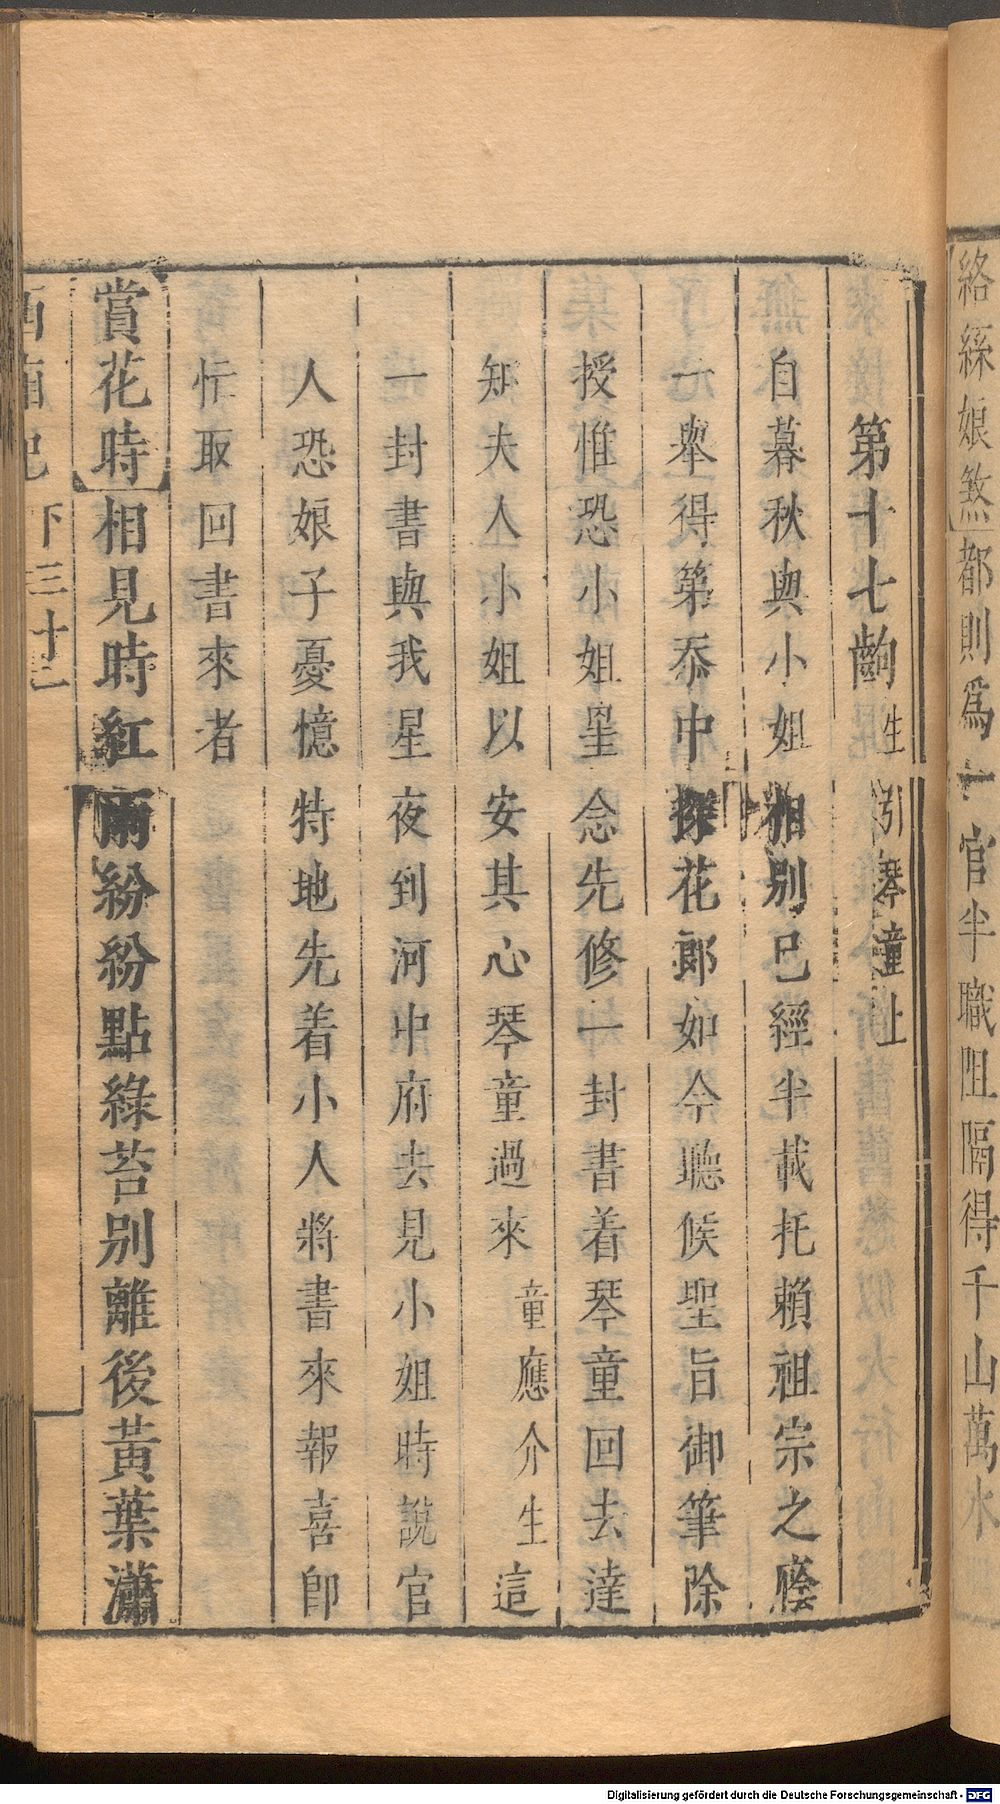 絡絲娘煞都則爲一官半職阻隔得千山萬水
第十七齣生引琴童上
自暮秋與小姐相別已經半載托賴祖宗之廕
一舉得第忝中探花郎如今聽候聖旨御筆除
授惟恐小姐望念先修一封書着琴童回去達
知夫人小姐以安其心琴童過來童應介生這
一封書與我星夜到河中府去見小姐時說官
人恐娘子憂憶特地先着小人將書來報喜即
忙取回書來者
賞花時相見時紅雨紛紛點綠苔別離後黃葉瀟
西廂記 下 三十二
Digitalisierung gefördert durch die Deutsche Forschungsgemeinschaft - DFG